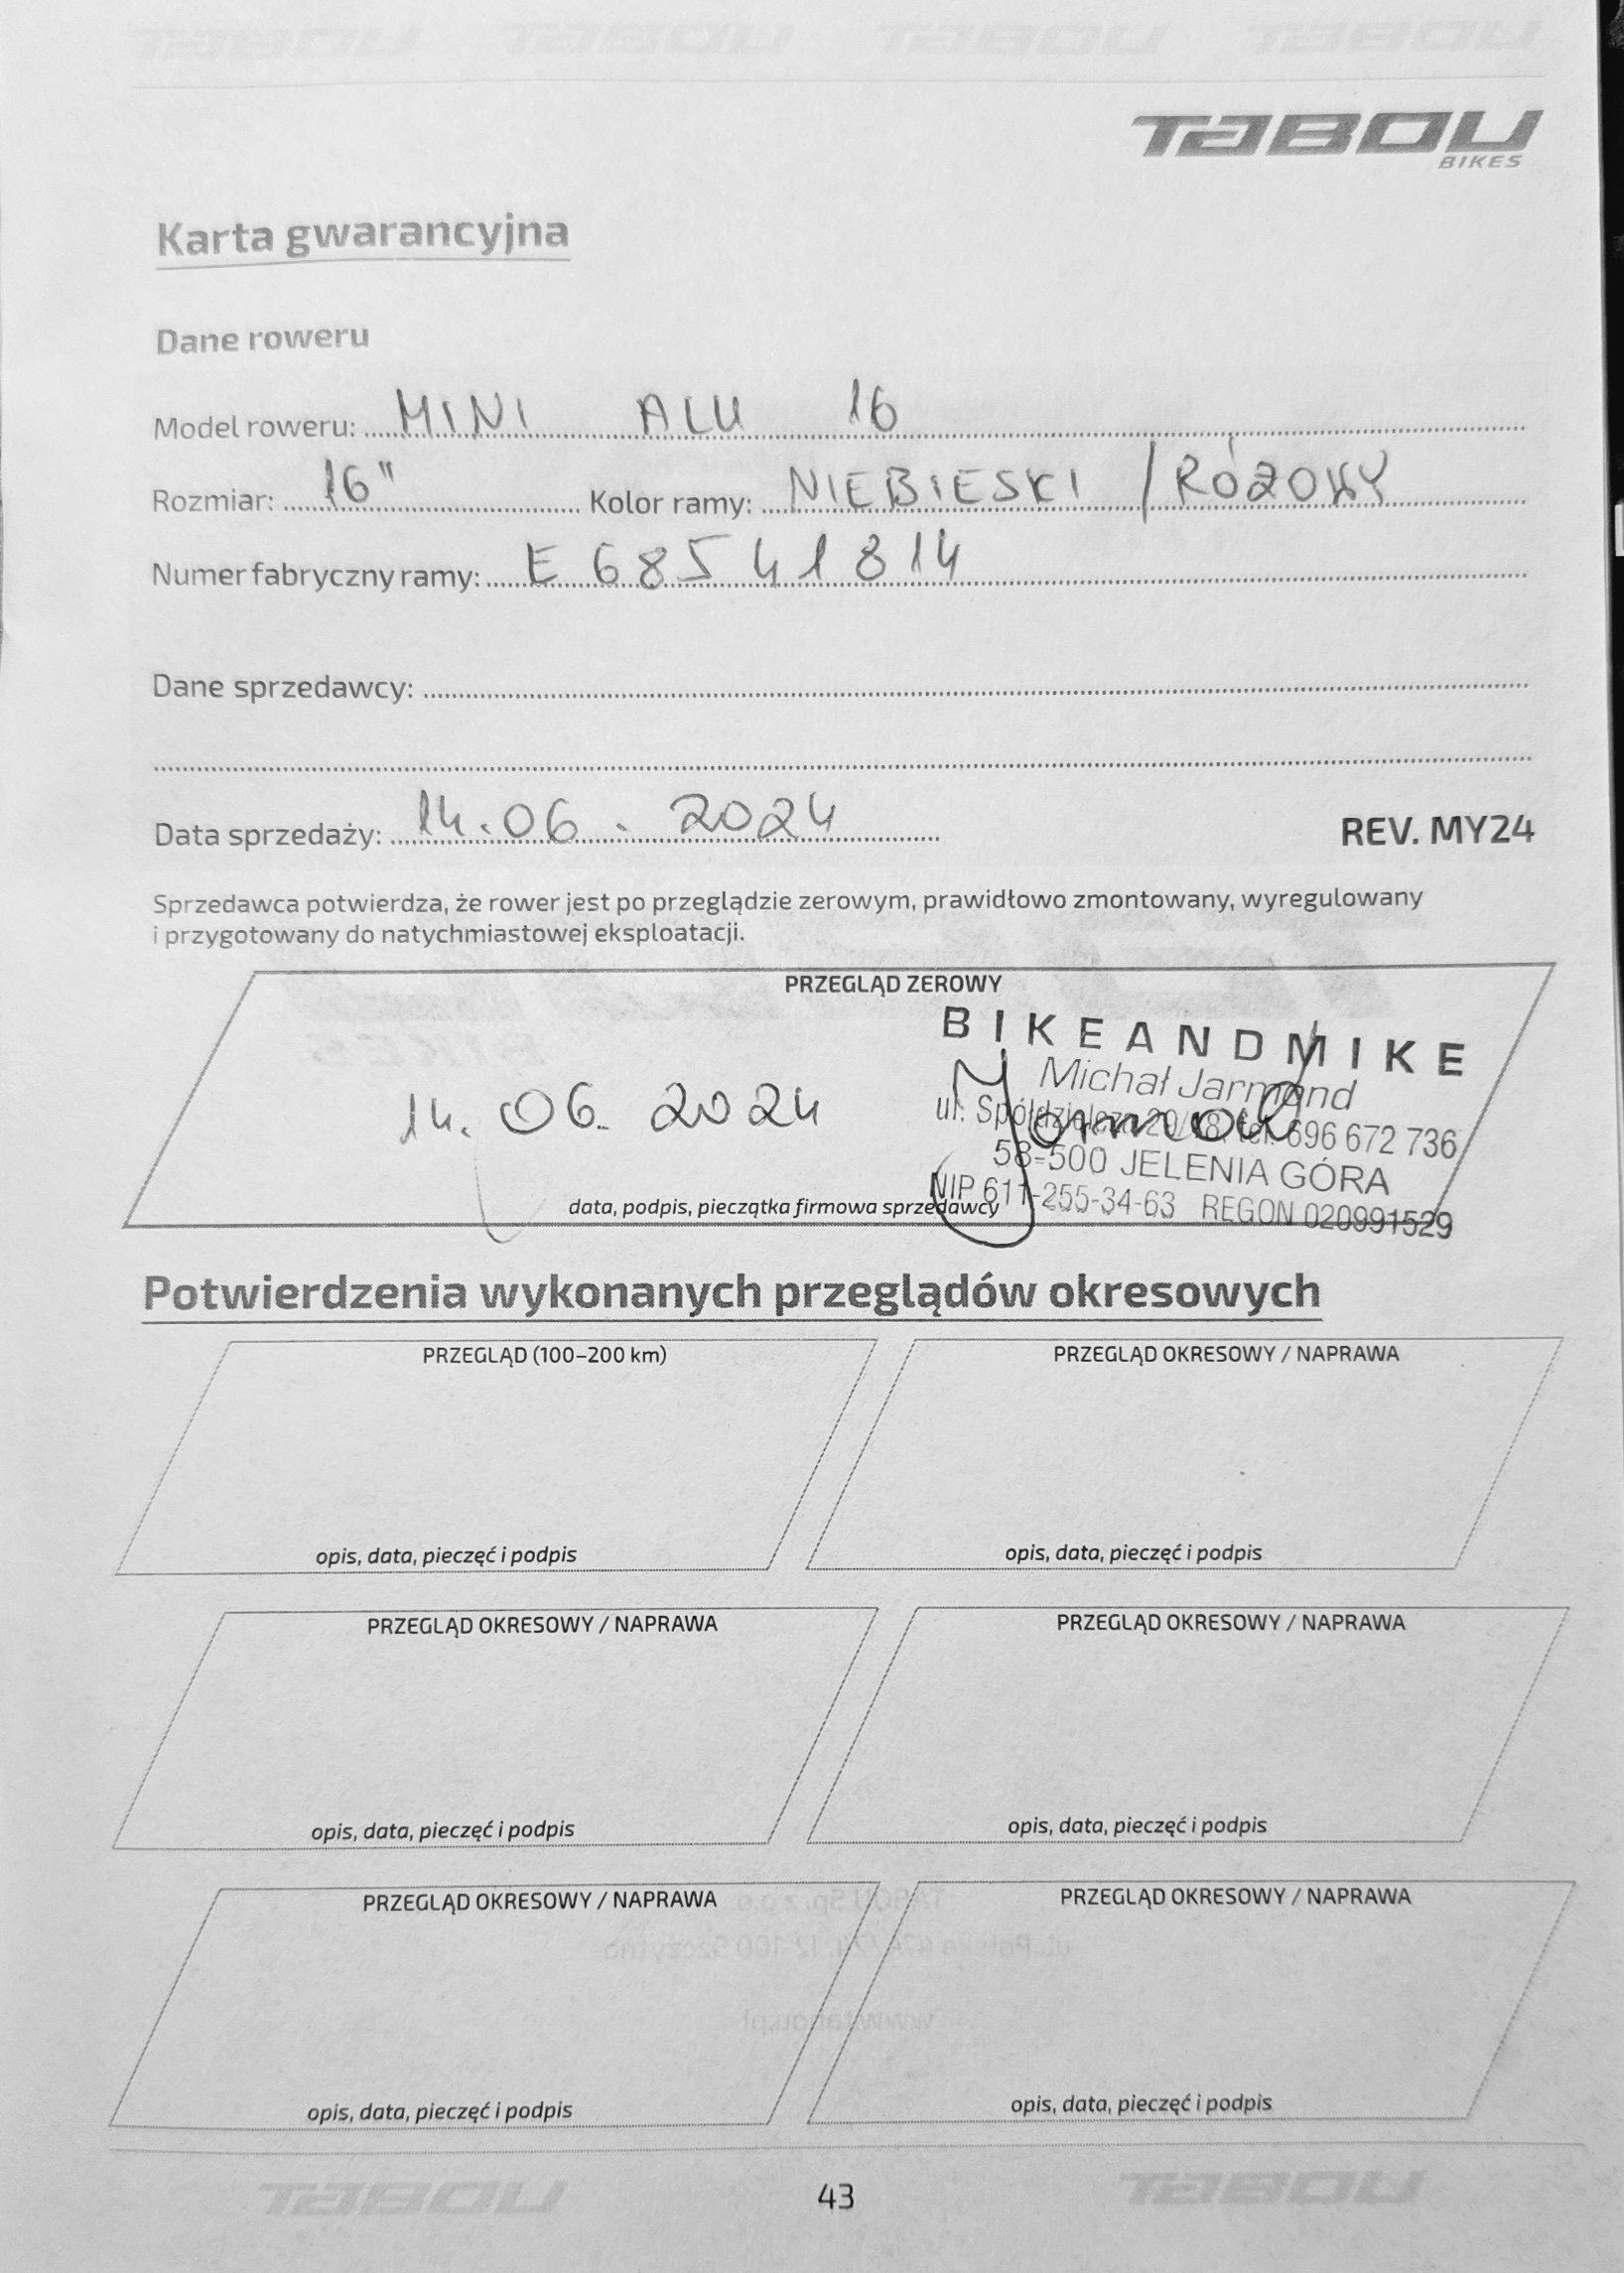 TABOU TABOU TABOU TABOU
TABOU
BIKES
Karta gwarancyjna
Dane roweru
Model roweru: MINI ALU 16
Rozmiar: 16" Kolor ramy: NIEBIESKI / RÓŻOWY
Numer fabryczny ramy: E 68541814
Dane sprzedawcy:
Data sprzedaży: 14.06.2024
REV. MY24
Sprzedawca potwierdza, że rower jest po przeglądzie zerowym, prawidłowo zmontowany, wyregulowany
i przygotowany do natychmiastowej eksploatacji.
PRZEGLĄD ZEROWY
BIKEANDMIKE
Michał Jarmond
ul. Spółdzielcza 29/ tel. 696 672 736
58-500 JELENIA GÓRA
NIP 611-255-34-63 REGON 020991529
14. 06. 2024
data, podpis, pieczątka firmowa sprzedawcy
Potwierdzenia wykonanych przeglądów okresowych
PRZEGLĄD (100–200 km) PRZEGLĄD OKRESOWY / NAPRAWA
opis, data, pieczęć i podpis opis, data, pieczęć i podpis
PRZEGLĄD OKRESOWY / NAPRAWA PRZEGLĄD OKRESOWY / NAPRAWA
opis, data, pieczęć i podpis opis, data, pieczęć i podpis
PRZEGLĄD OKRESOWY / NAPRAWA PRZEGLĄD OKRESOWY / NAPRAWA
opis, data, pieczęć i podpis opis, data, pieczęć i podpis
TABOU 43 TABOU